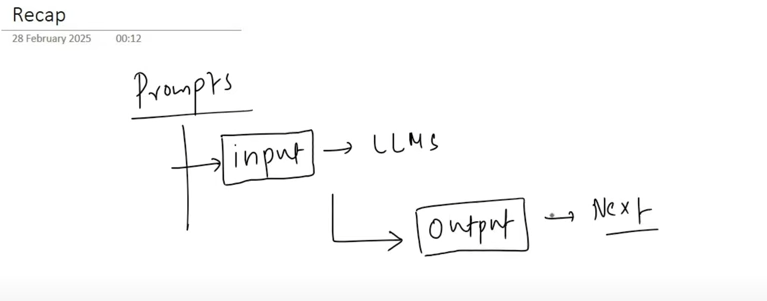 Recap
28 February 2025 00:12
Prompts
input → LLMs
output → Next